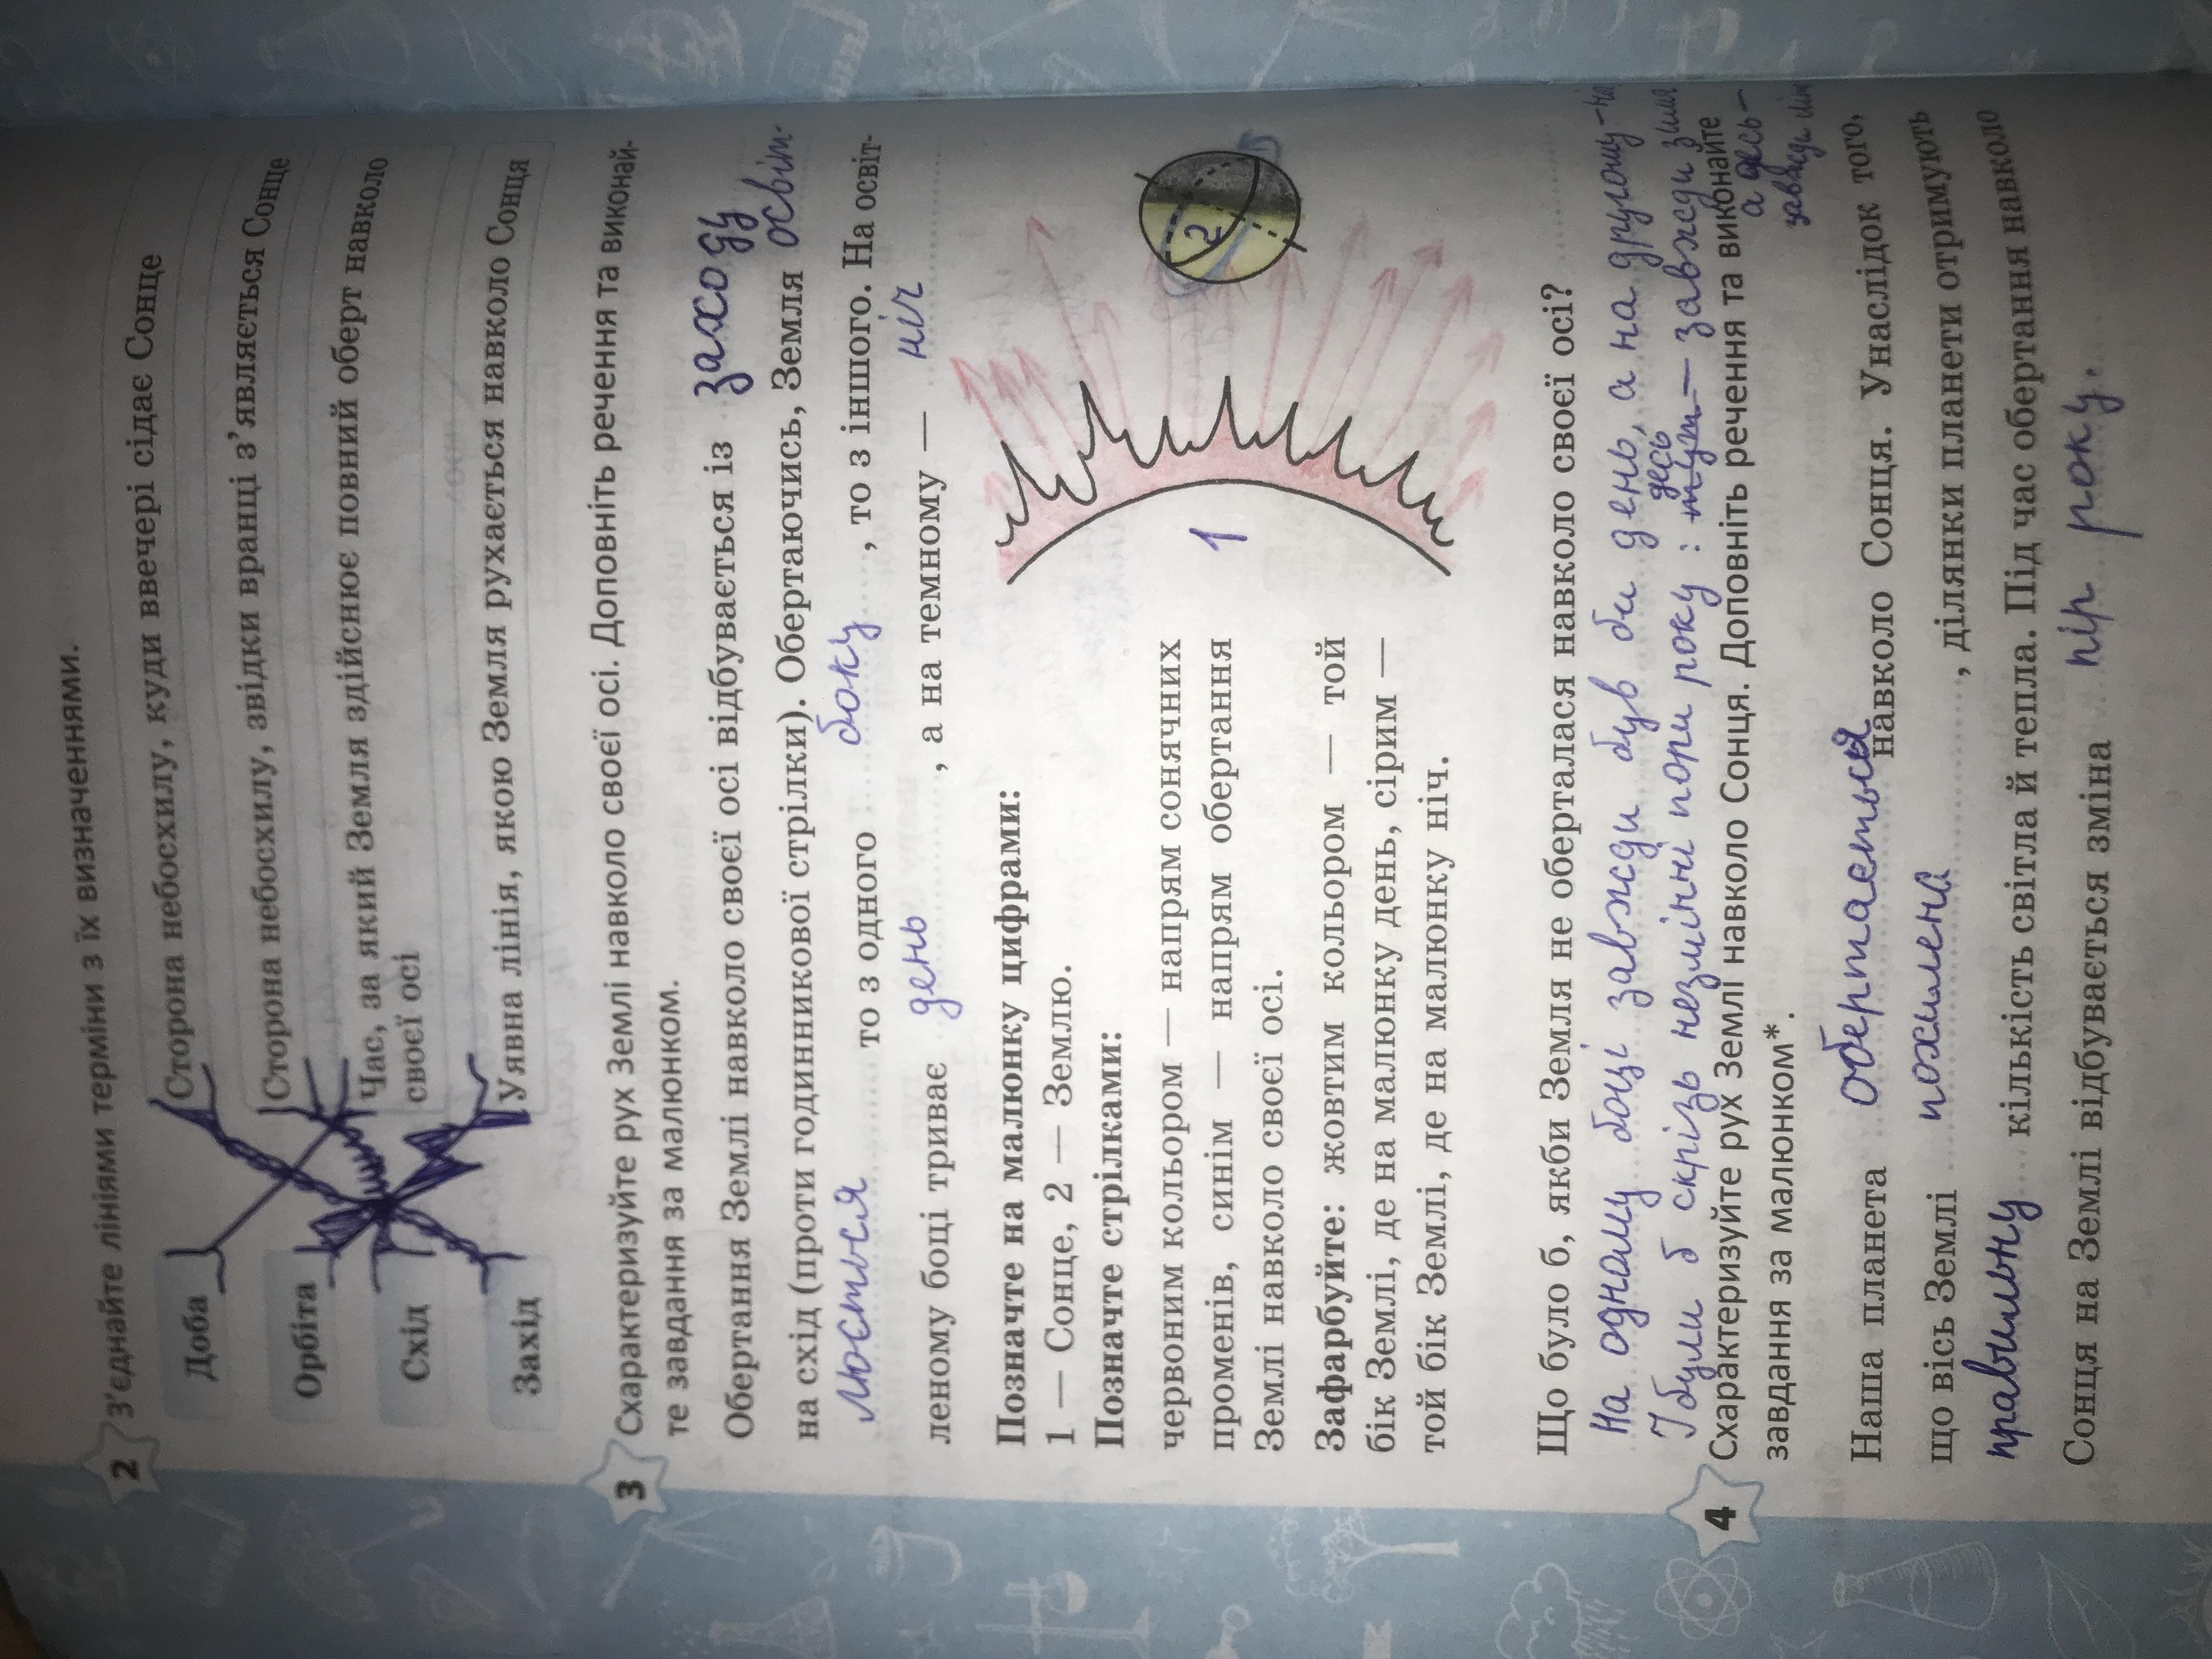 2 З'єднайте лініями терміни з їх визначеннями.
Доба
Сторона небосхилу, куди ввечері сідає Сонце
Орбіта
Сторона небосхилу, звідки вранці з'являється Сонце
Схід
Час, за який Земля здійснює повний оберт навколо
своєї осі
Захід
Уявна лінія, якою Земля рухається навколо Сонця
3 Схарактеризуйте рух Землі навколо своєї осі. Доповніть речення та виконай-
те завдання за малюнком.
Обертання Землі навколо своєї осі відбувається із заходу
на схід (проти годинникової стрілки). Обертаючись, Земля освіт-
люється то з одного боку, то з іншого. На освіт-
леному боці триває день, а на темному — ніч
Позначте на малюнку цифрами:
1 — Сонце, 2 — Землю.
Позначте стрілками:
червоним кольором — напрям сонячних
променів, синім — напрям обертання
Землі навколо своєї осі.
Зафарбуйте: жовтим кольором — той
бік Землі, де на малюнку день, сірим —
той бік Землі, де на малюнку ніч.
1
2
Що було б, якби Земля не оберталася навколо своєї осі?
На одному боці завжди був би день, а на другому - ні
І були б скрізь незмінні пори року: десь — завжди зима
а десь —
завжди літ
4 Схарактеризуйте рух Землі навколо Сонця. Доповніть речення та виконайте
завдання за малюнком*.
Наша планета обертається навколо Сонця. Унаслідок того,
що вісь Землі похилена, ділянки планети отримують
правильну кількість світла й тепла. Під час обертання навколо
Сонця на Землі відбувається зміна пір року.